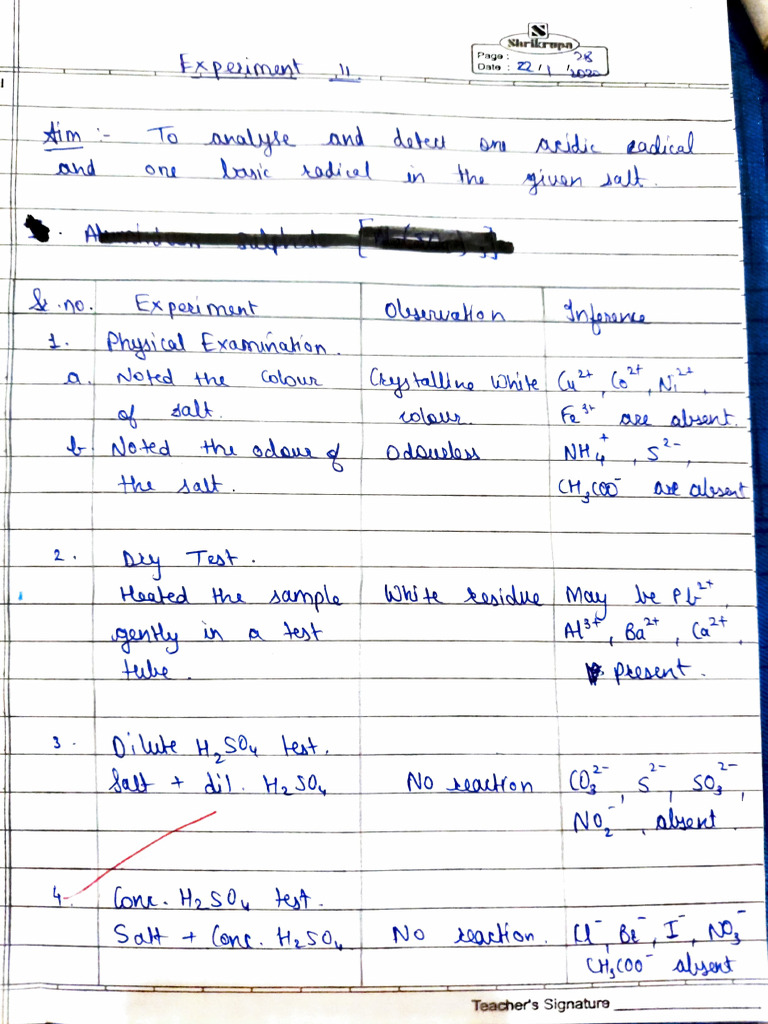 Shrikrupa
Page : 28
Date : 22/1/2020
Experiment 11
Aim :- To analyse and detect one acidic radical
and one basic radical in the given salt.
Sr. no. Experiment Observation Inference
1. Physical Examination.
a. Noted the colour Crystalline White Cu²⁺, Co²⁺, Ni²⁺,
of salt. colour. Fe³⁺ are absent.
b. Noted the odour of Odourless NH₄⁺, S²⁻,
the salt. CH₃COO⁻ are absent
2. Dry Test.
Heated the sample White residue May be Pb²⁺,
gently in a test Al³⁺, Ba²⁺, Ca²⁺,
tube. present.
3. Dilute H₂SO₄ test.
Salt + dil. H₂SO₄ No reaction CO₃²⁻, S²⁻, SO₃²⁻,
NO₂⁻, absent.
4. Conc. H₂SO₄ test.
Salt + Conc. H₂SO₄ No reaction. Cl⁻, Br⁻, I⁻, NO₃⁻
CH₃COO⁻ absent
Teacher's Signature